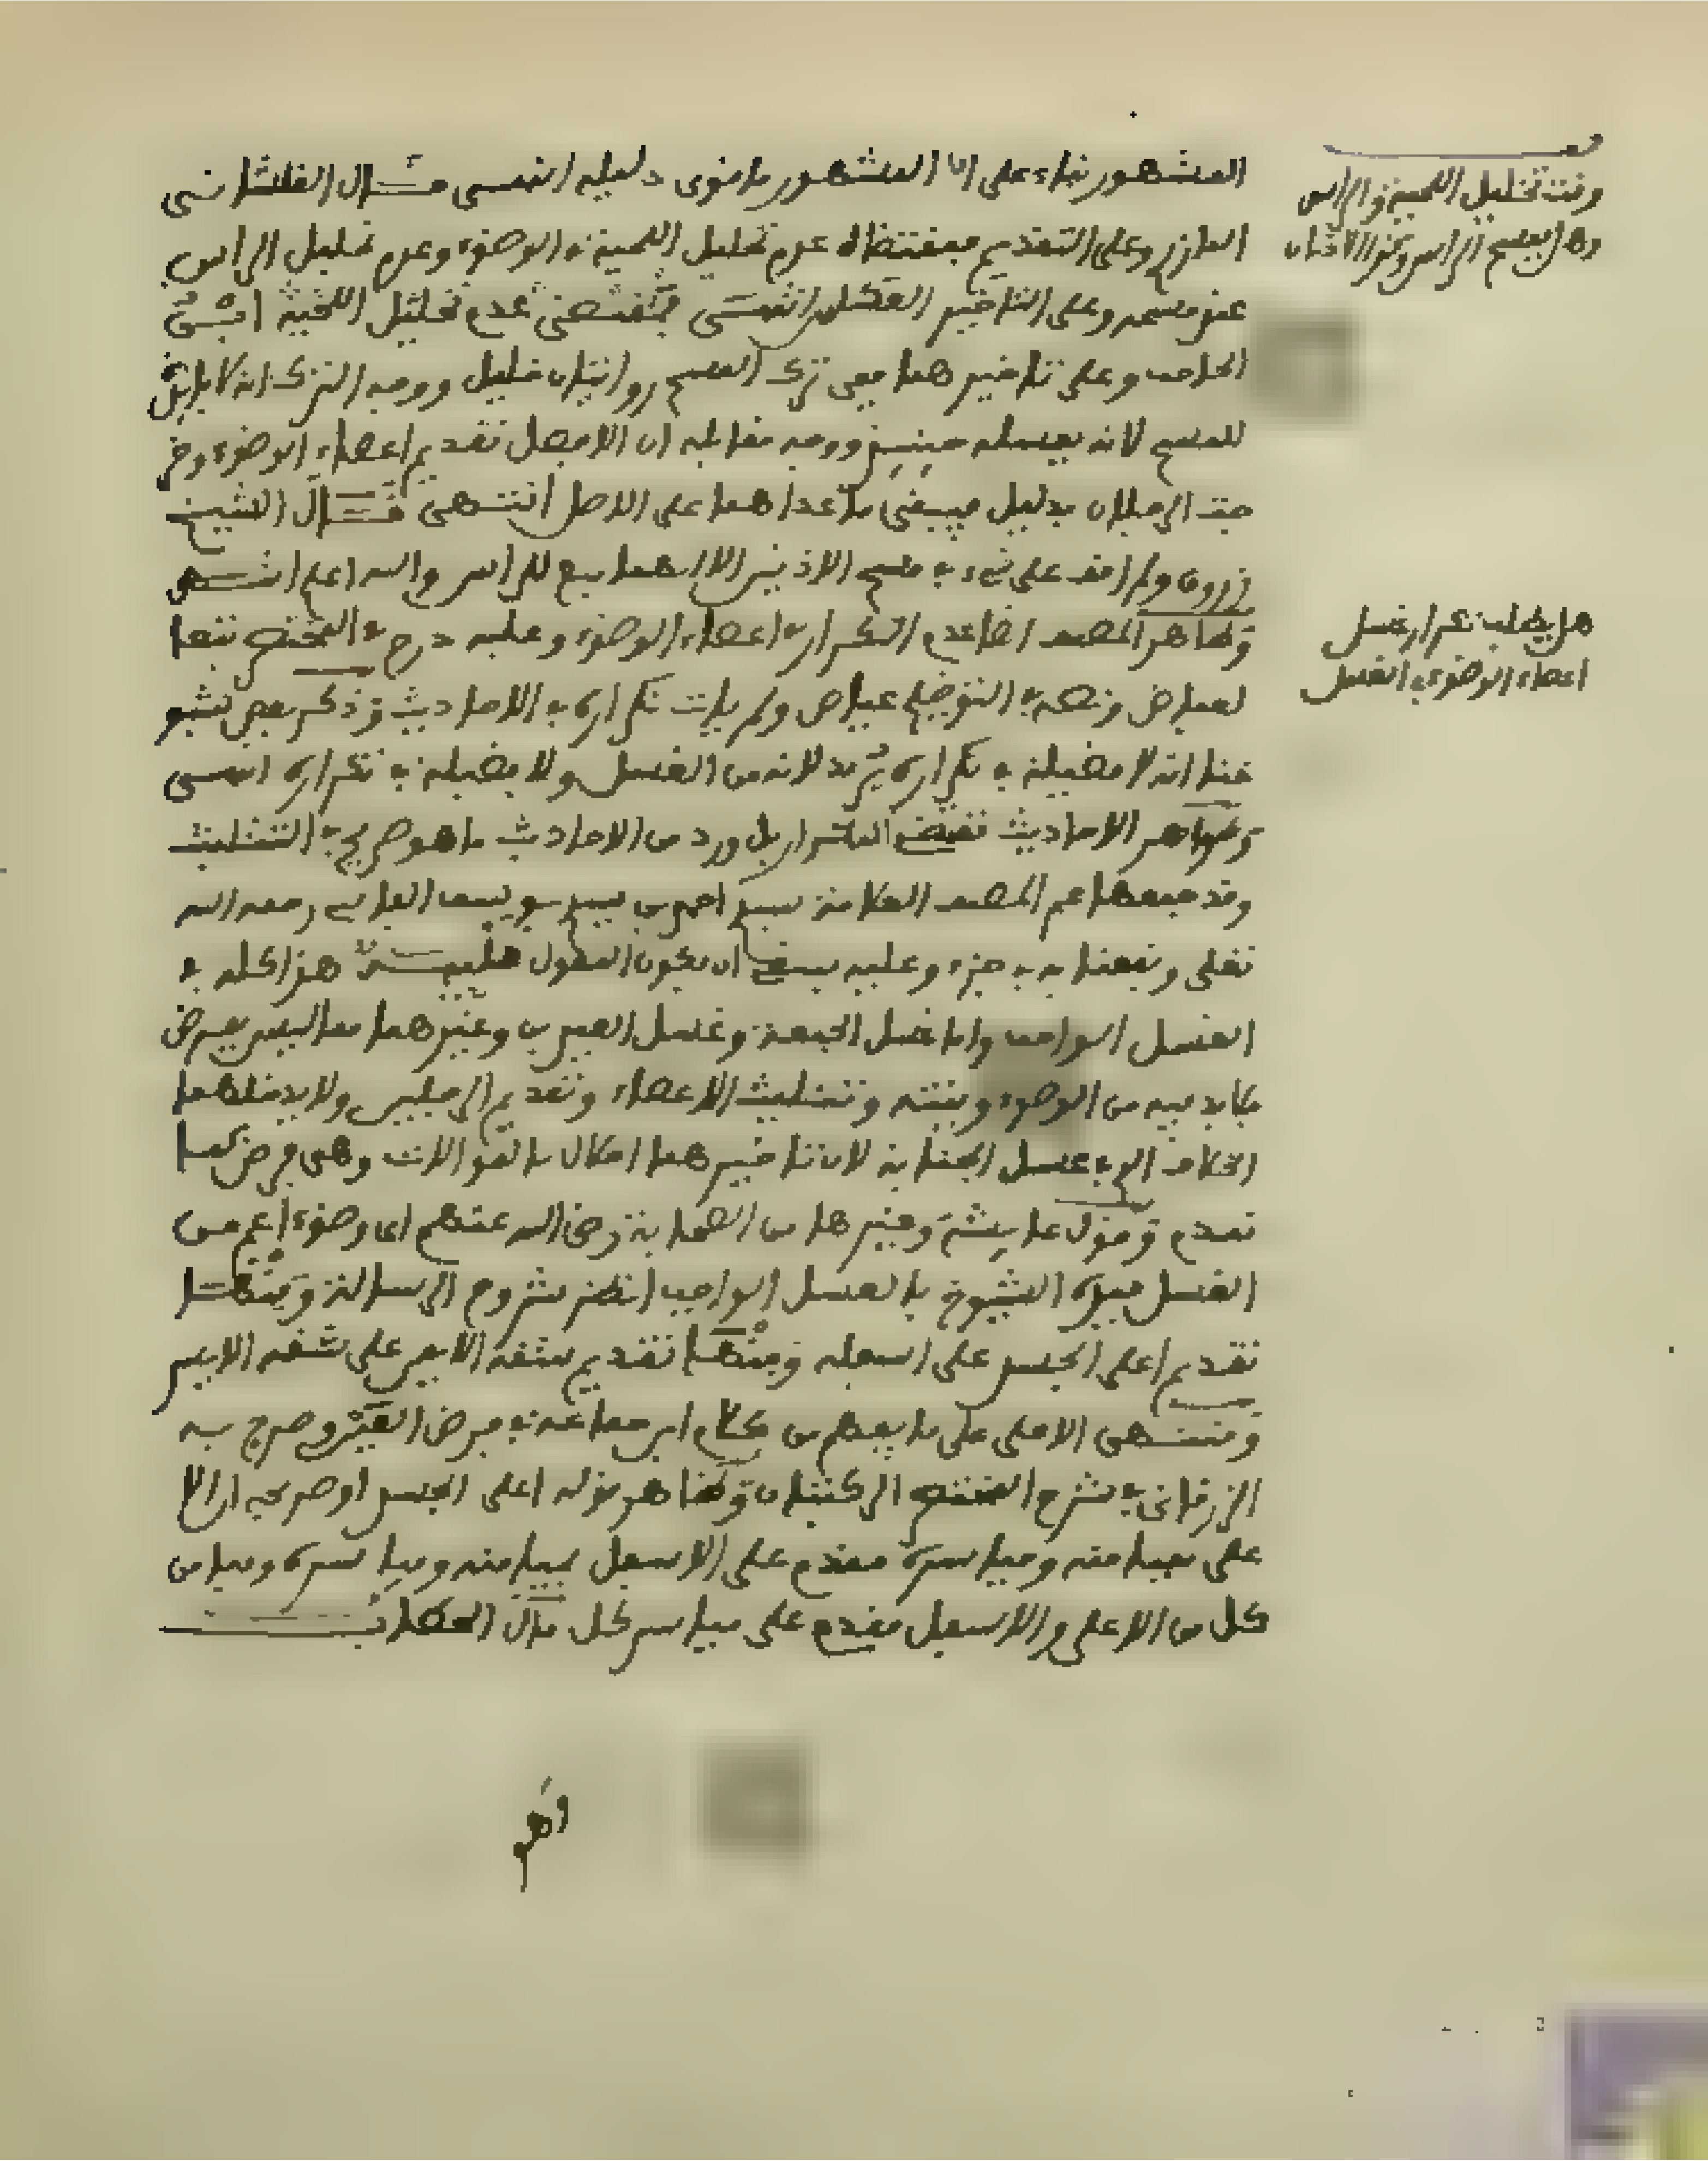 المشهور بناء على ان المشهور ما نوى دليله انتهى قال القلشاني
المازري وعلى التقديم فمقتضاه عدم تخليل اللحية في الوضوء وعدم تخليل الراس
عند مسحه وعلى التاخير انتهى فمقتضى عدم تخليل اللحية ابن
الحاجب وعلى تاخيرهما ففي ترك المسح روايتان خليل ووجه الترك انه لا فايدة
للمسح لانه يغسله حينئذ ووجه مقابله ان الافضل تقديم اعضاء الوضوء وخر
جت الرجلان بدليل فيبقى ما عداهما على الاصل انتهى قال الشيخ
زروق ولم اقف على شيء في مسح الاذنين الا انهما تبع للراس والله اعلم انتهى
وظاهر المصنف ايضا عدم التكرار في اعضاء الوضوء وعليه درج في المختصر تبعا
لعياض ونصه في التوضيح عياض ولم يات تكراره في الاحاديث وذكر بعض شيو
خنا انه لا فضيلة في تكراره يريد لانه من الغسل ولا فضيلة في تكراره انتهى
وظواهر الاحاديث تقتضي التكرار بل ورد من الاحاديث ما هو صريح في التثليث
وقد جمعها عم المصنف العلامة سيدي احمد بن سيدي يوسف الفاسي رحمه الله
تعلى ونفعنا به في جزء وعليه ينبغي ان يكون المعول هذا كله في
الغسل الواجب واما غسل الجمعة وغسل العيدين وغيرهما مما ليس بفرض
فلا بد فيه من الوضوء ونيته وتثليث الاعضاء وتقديم الرجلين ولا يدخلهما
الخلاف الذي في غسل الجنابة لان تاخيرهما اخلال بالموالات وهي فرض كما
تقدم وقول عايشة وغيرها من الصحابة رضي الله عنهم اي وضوء اعم من
الغسل قيده الشيوخ بالغسل الواجب انظر شروح الرسالة ومنها
تقديم اعلى الجسد على اسفله ومنها تقديم شقه الايمن على شقه الايسر
ومنتهى الاعلى على ما يفهم من كلام ابن جماعة في فرض العين وصرح به
الزرقاني في شرح المختصر الركبتان وظاهر قوله اعلى الجسد او صريحه ان الا
على ميامنه ومياسره مقدم على الاسفل ميامنه ومياسره وميامن
كل من الاعلى والاسفل مقدم على مياسر كل قال الحطاب
وهو
وقت تخليل اللحية والراس
وهل يمسح الراس وكذا الاذنان
هل يطلب تكرار غسل
اعضاء الوضوء في الغسل